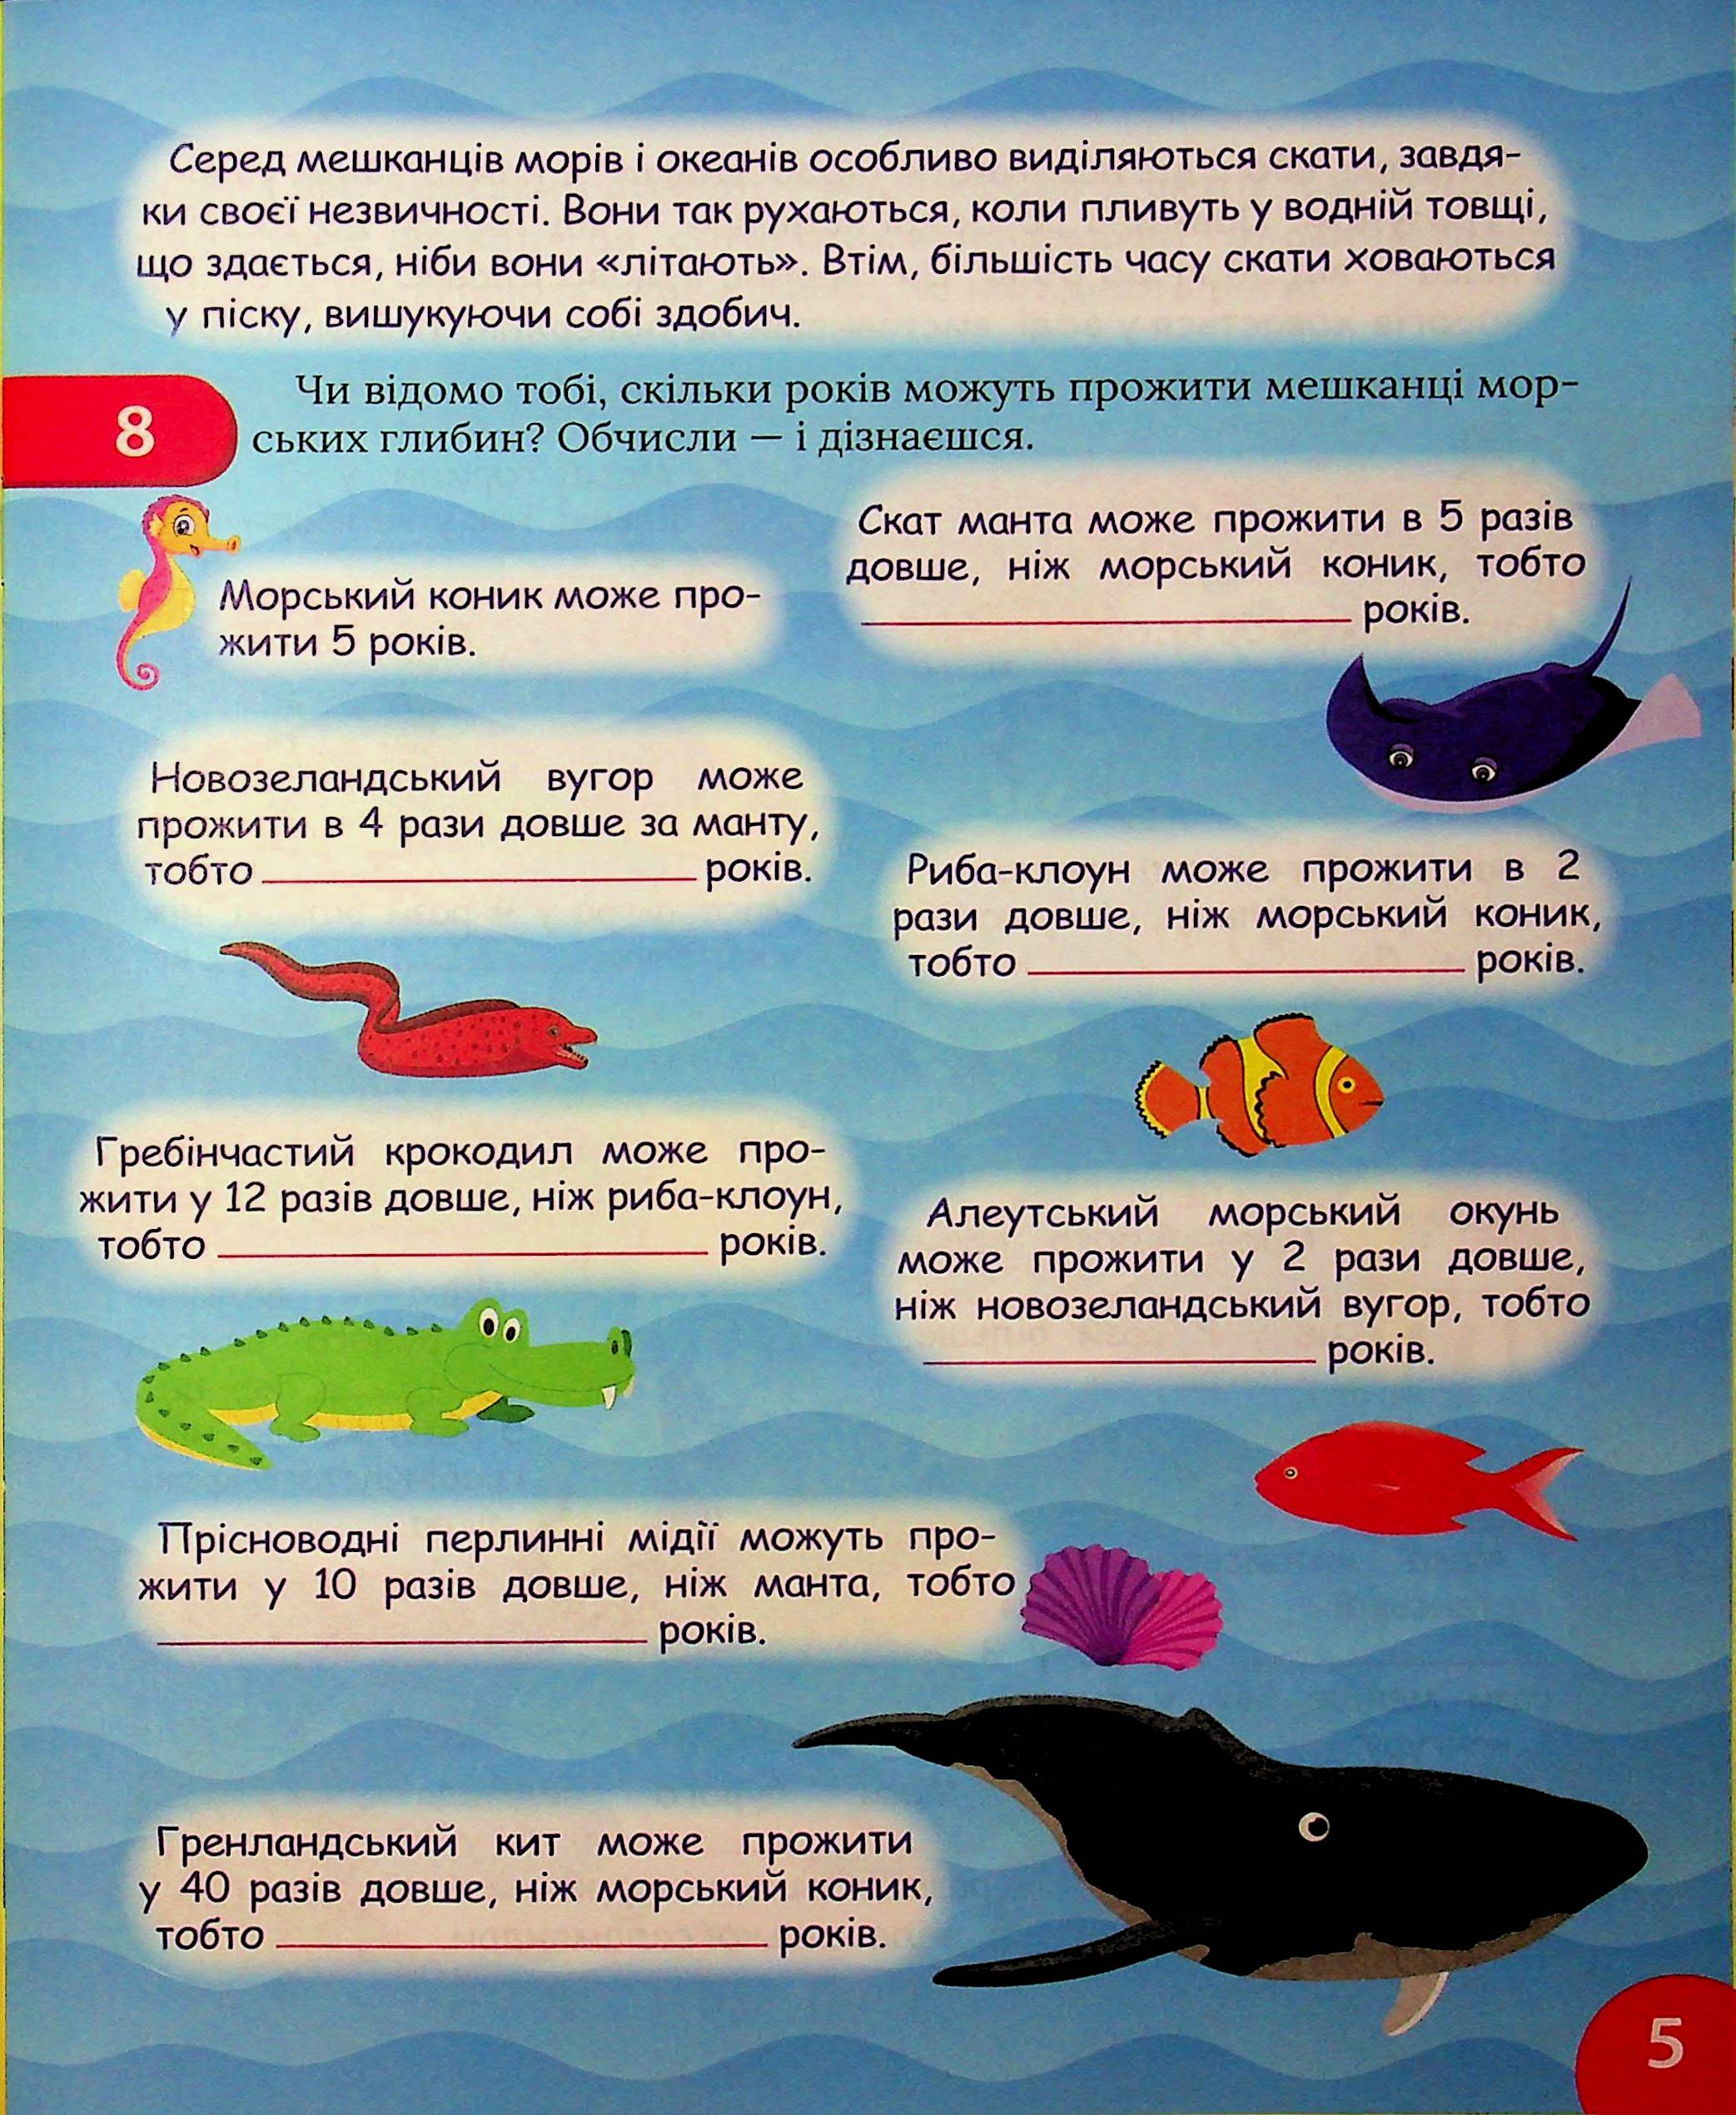 Серед мешканців морів і океанів особливо виділяються скати, завдя-
ки своєї незвичності. Вони так рухаються, коли пливуть у водній товщі,
що здається, ніби вони «літають». Втім, більшість часу скати ховаються
у піску, вишукуючи собі здобич.
8
Чи відомо тобі, скільки років можуть прожити мешканці мор-
ських глибин? Обчисли — і дізнаєшся.
Морський коник може про-
жити 5 років.
Скат манта може прожити в 5 разів
довше, ніж морський коник, тобто
років.
Новозеландський вугор може
прожити в 4 рази довше за манту,
тобто років.
Риба-клоун може прожити в 2
рази довше, ніж морський коник,
тобто років.
Гребінчастий крокодил може про-
жити у 12 разів довше, ніж риба-клоун,
тобто років.
Алеутський морський окунь
може прожити у 2 рази довше,
ніж новозеландський вугор, тобто
років.
Прісноводні перлинні мідії можуть про-
жити у 10 разів довше, ніж манта, тобто
років.
Гренландський кит може прожити
у 40 разів довше, ніж морський коник,
тобто років.
5